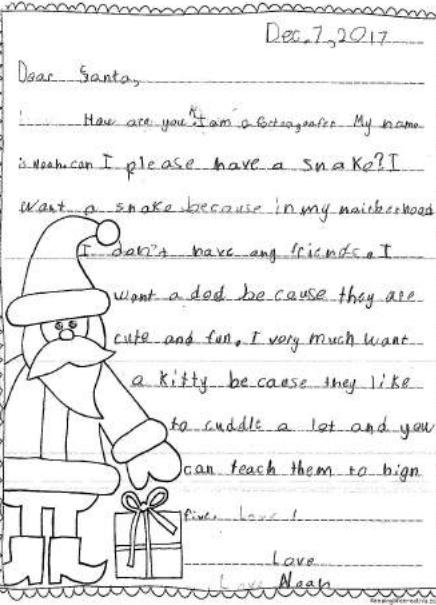 Dec. 7, 2017
Dear Santa,
How are you? I am a My name
is Noah. can I please have a snake? I
want a snake because in my naicberhood
I don't have any friends. I
want a dod be cause they are
cute and fun. I very much want
a kitty be cause they like
to cuddle a lot and you
can teach them to hign
five. Love
Love
Love Noah